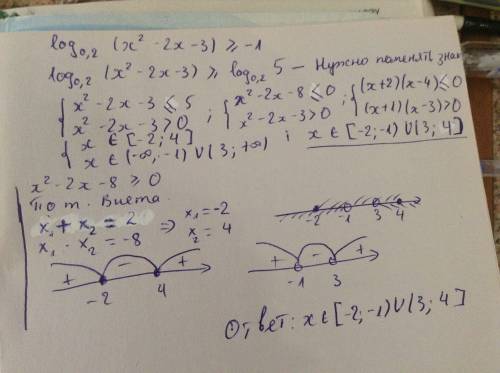 log₀,₂ (x² - 2x - 3) ≥ -1
log₀,₂ (x² - 2x - 3) ≥ log₀,₂ 5 — Нужно поменять знак
{ x² - 2x - 3 ≤ 5 ; { x² - 2x - 8 ≤ 0 ; { (x+2)(x-4) ≤ 0
{ x² - 2x - 3 > 0 ; { x² - 2x - 3 > 0 ; { (x+1)(x-3) > 0
{ x ∈ [-2; 4]
{ x ∈ (-∞, -1) ∪ (3; +∞) ; x ∈ [-2; -1) ∪ (3; 4]
x² - 2x - 8 ≥ 0
по т. Виета.
x₁ + x₂ = 2 ⇒ x₁ = -2
x₁ · x₂ = -8 x₂ = 4
-2 -1 3 4
+ - +
-2 4
+ - +
-1 3
Ответ: x ∈ [-2; -1) ∪ (3; 4]